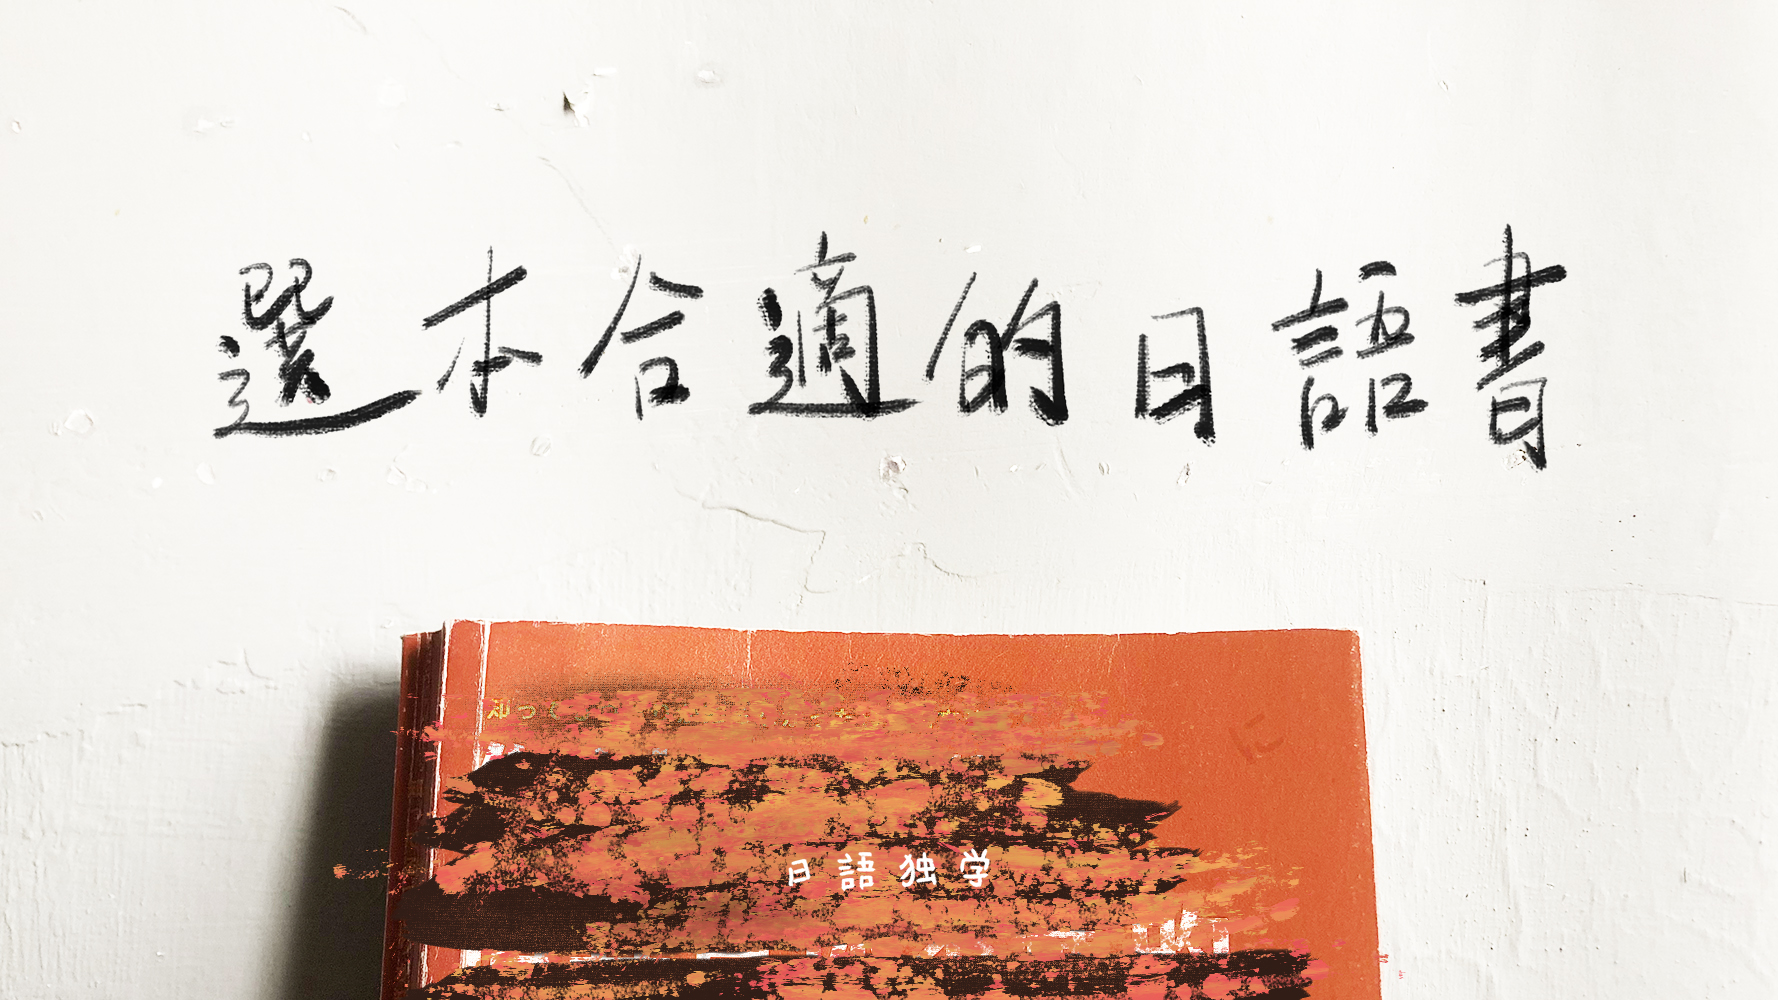 選本合適的日語書
日語独学